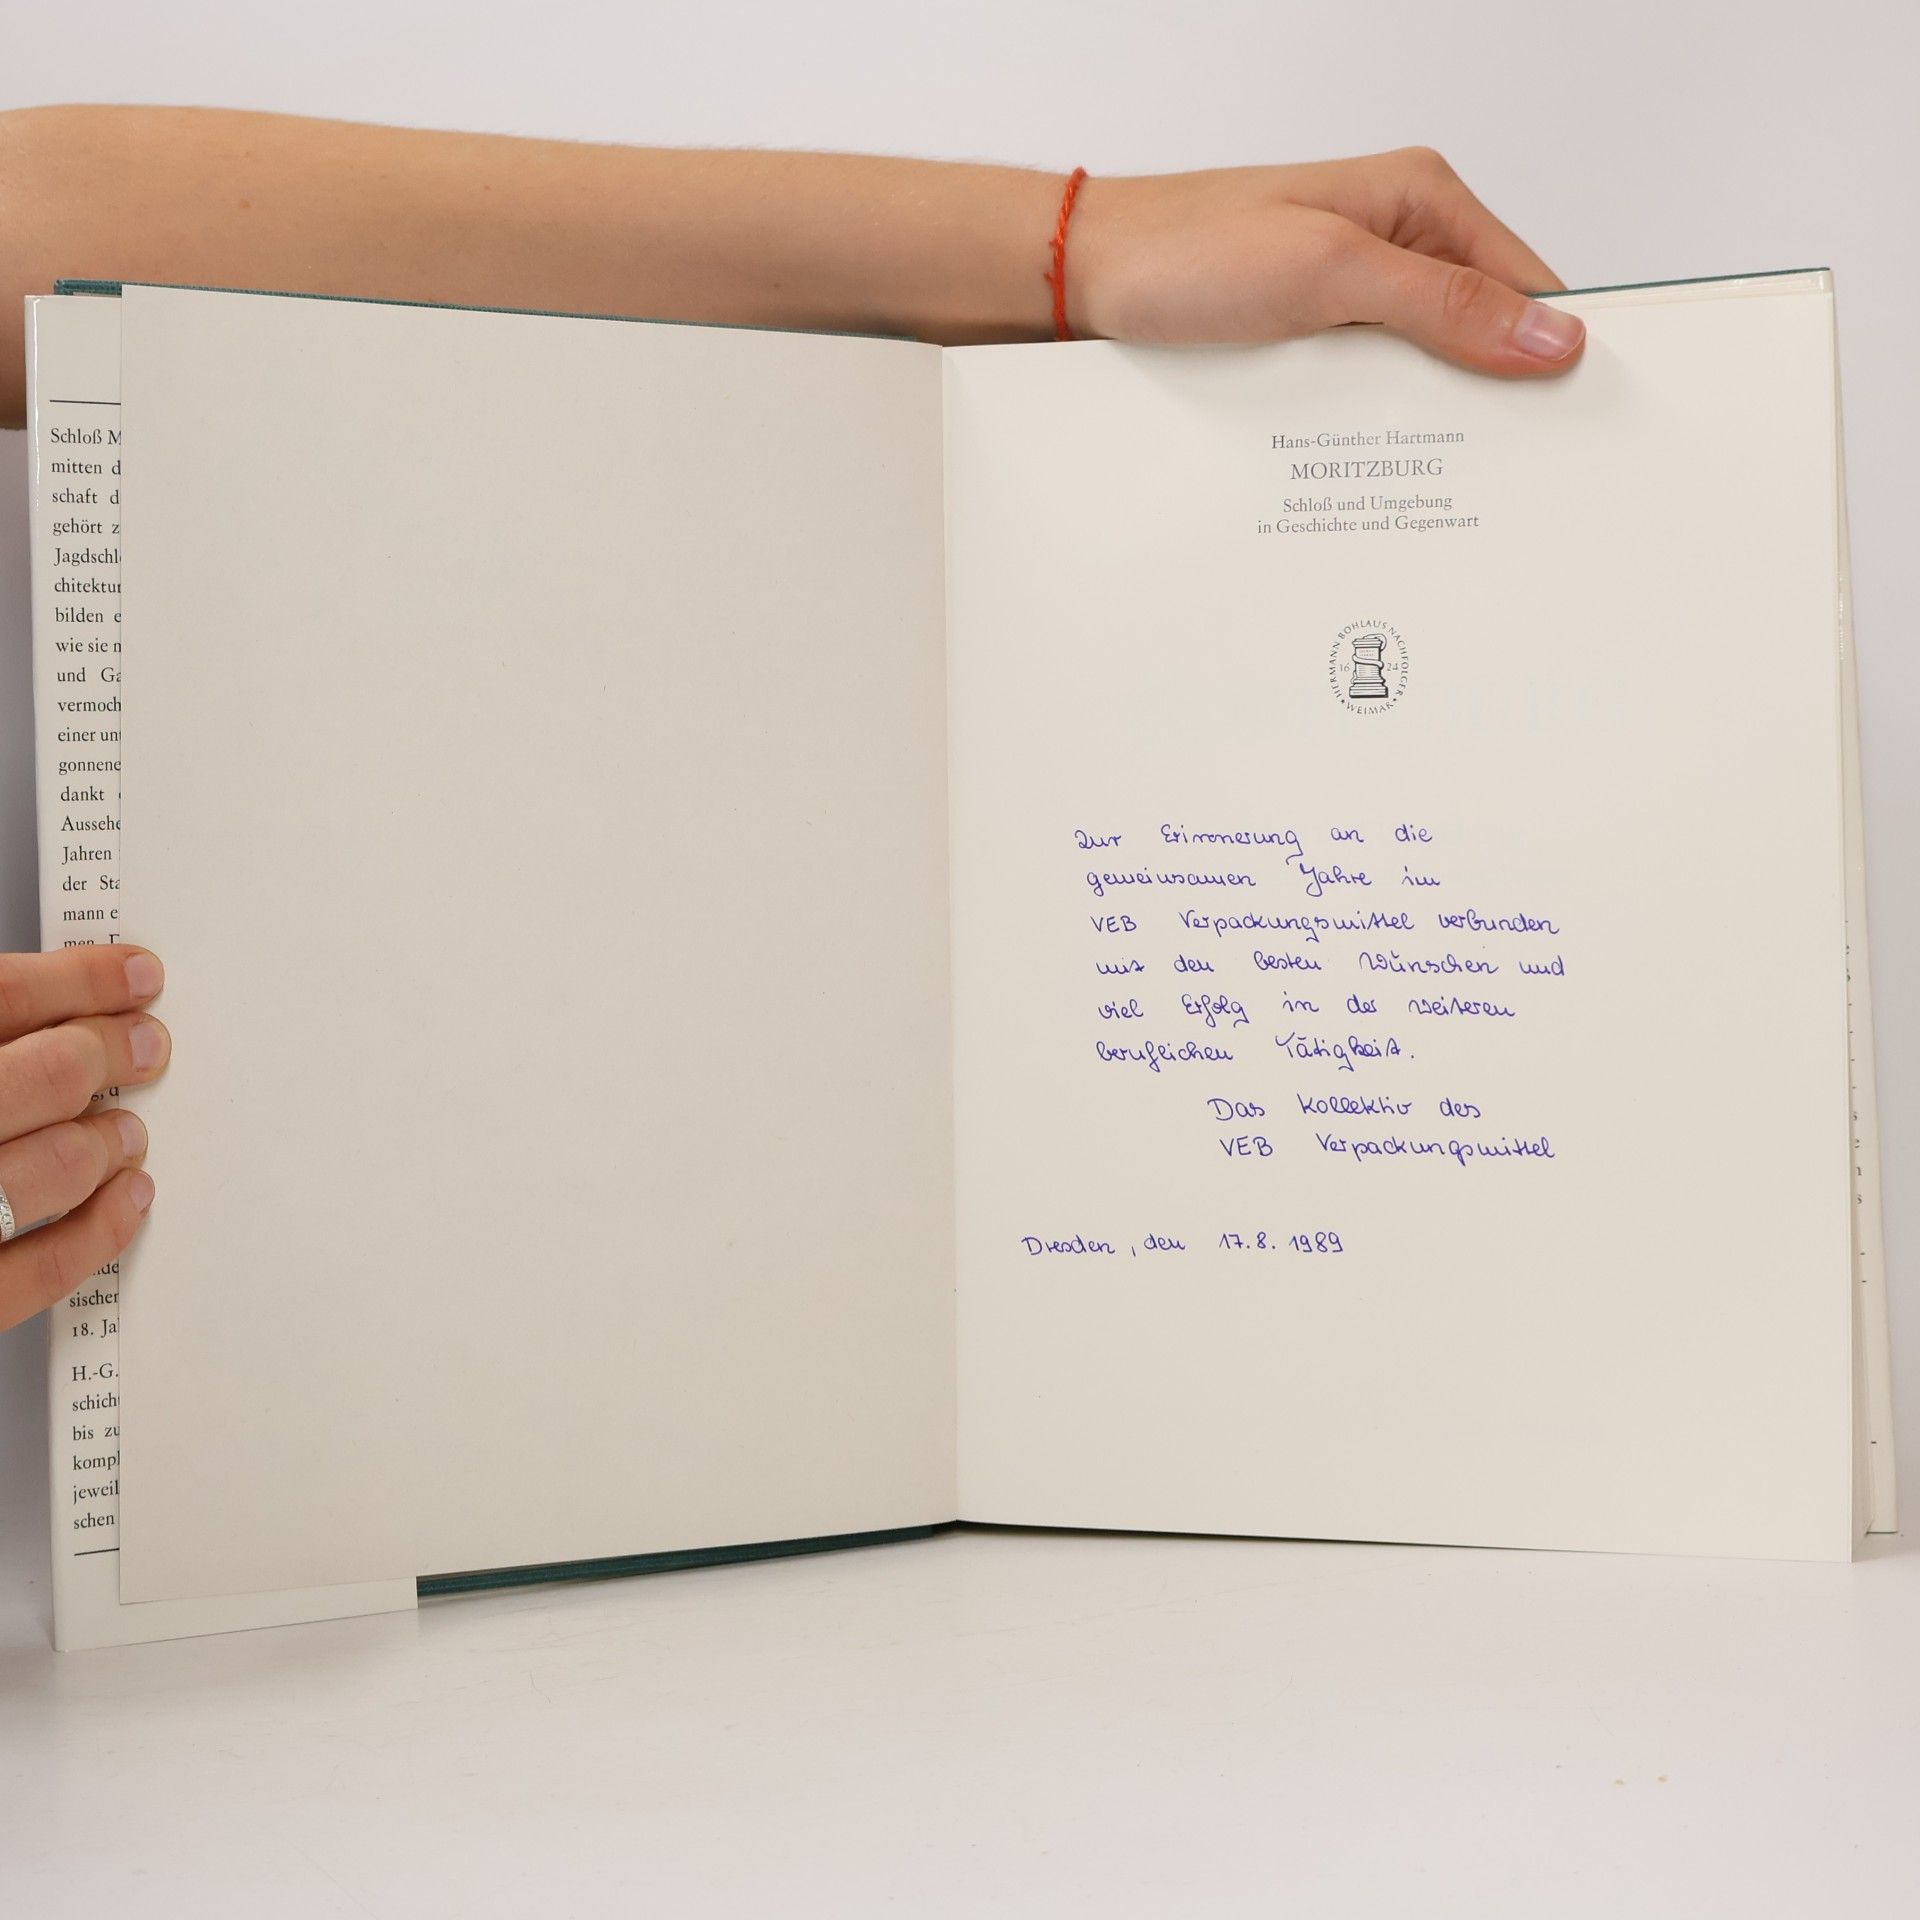 Schloß M
mitten d
schaft d
gehört z
Jagdschl
chitektur
bilden e
wie sie n
und Ga
vermoch
einer unt
gonnene
dankt
Aussehe
Jahren
der Sta
mann e
men. D
sischen
18. Jal
H.-G.
schicht
bis zu
kompl
jeweil
schen
Hans-Günther Hartmann
MORITZBURG
Schloß und Umgebung
in Geschichte und Gegenwart
HERMANN BÖHLAUS NACHFOLGER
16 24
WEIMAR
Zur Erinnerung an die
gemeinsamen Jahre im
VEB Verpackungsmittel verbunden
mit den besten Wünschen und
viel Erfolg in der weiteren
beruflichen Tätigkeit.
Das Kollektiv des
VEB Verpackungsmittel
Dresden, den 17.8.1989